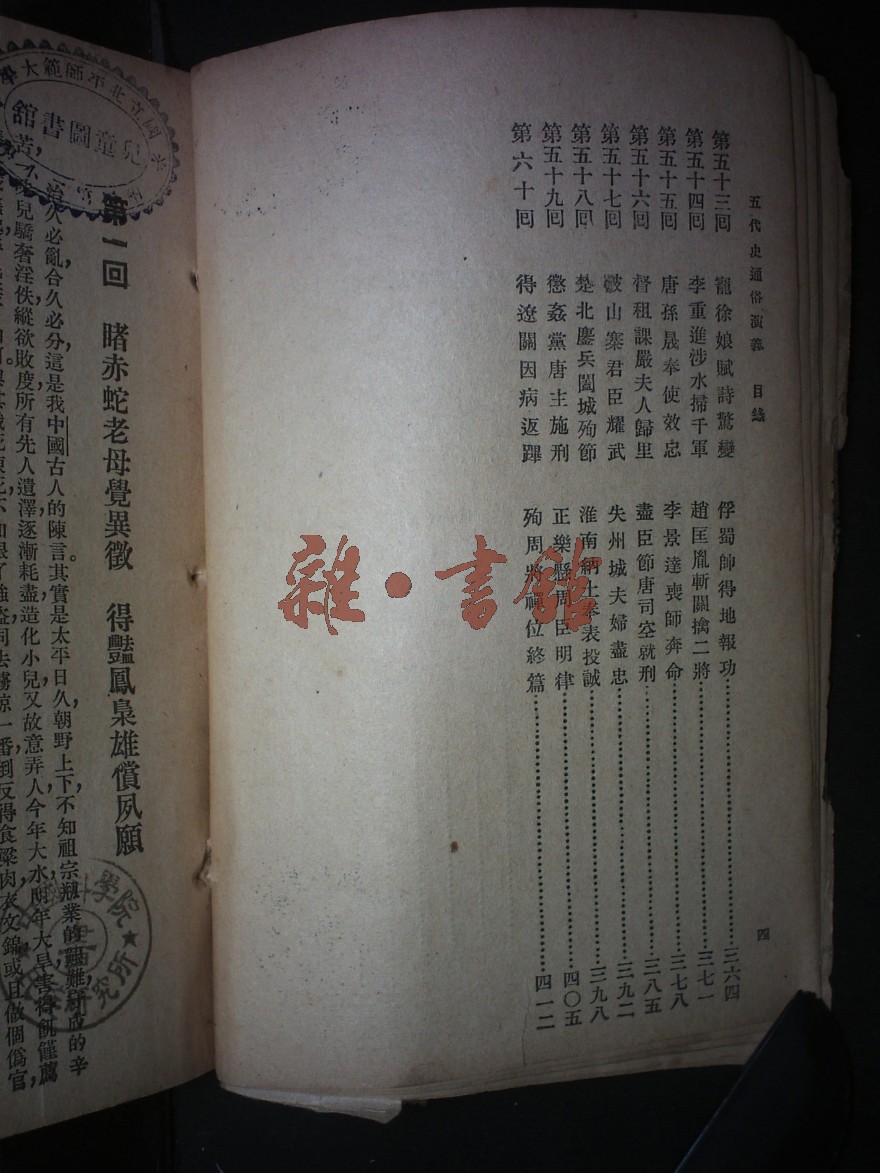 五代史通俗演義 目錄
四
第五十三回 寵徐娘賦詩驚變 俘蜀帥得地報功 三六四
第五十四回 李重進涉水掃千軍 趙匡胤斬關擒二將 三七一
第五十五回 唐孫晟奉使效忠 李景達喪師奔命 三七八
第五十六回 督租課嚴夫人歸里 盡臣節唐司空就刑 三八五
第五十七回 破山寨君臣耀武 失州城夫婦盡忠 三九二
第五十八回 楚北鏖兵闔城殉節 淮南納土奉表投誠 三九八
第五十九回 懲姦黨唐主施刑 正樂懸周臣明律 四〇五
第六十回 得遼關因病返蹕 殉周將禪位終篇 四一二
雜·書館
國立北平師範大學
兒童圖書館
第一回 睹赤蛇老母覺異徵 得豔鳳梟雄償夙願
治久必亂合久必分這是我中國古人的陳言其實是太平日久,朝野上下,不知祖宗創業的艱難,守成的辛
苦,兒驕奢淫佚縱欲敗度所有先人遺澤逐漸耗盡造化小兒又故意弄人今年大水明年大旱害得飢饉薦
一番到反得食粱肉衣文錦或且做個僞官,
學院
究所